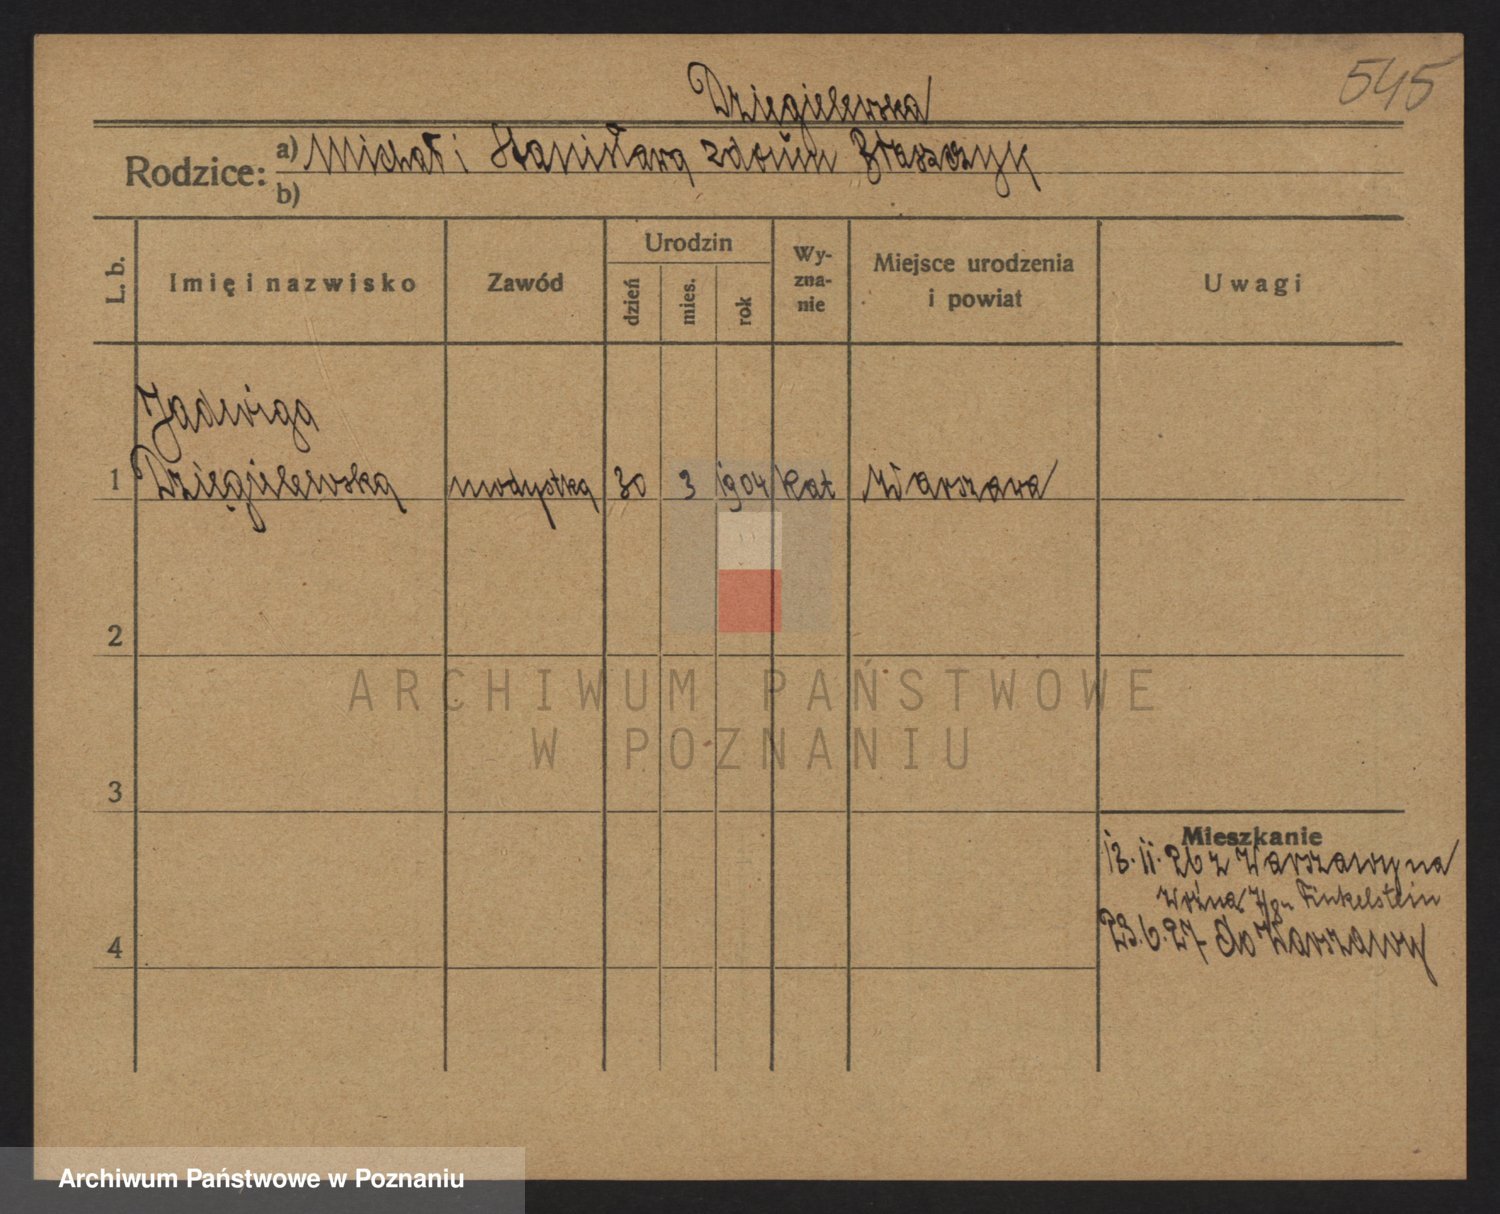 545
Dzięgielewska
Rodzice: a) Michał i Stanisława z domu Błaszczyk
b)
L. b. Imię i nazwisko Zawód Urodzin dzień mies. rok Wy-zna-nie Miejsce urodzenia i powiat Uwagi
Jadwiga
1 Dzięgielewska modystka 30 3 1904 kat Warszawa
2
ARCHIWUM PAŃSTWOWE
W POZNANIU
3
Mieszkanie
13.11.26 z Warszawy na
Finkelstein
4 23.6.27 do Warszawy
Archiwum Państwowe w Poznaniu